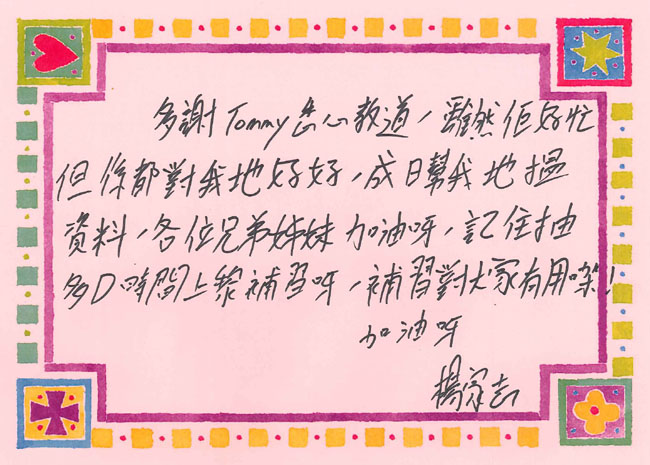 多謝Tommy悉心教道，雖然佢好忙
但係都對我地好好，成日幫我地搵
資料，各位兄弟姊妹加油呀，記住抽
多D時間上黎補習呀，補習對大家有用㗎！
加油呀
楊家志